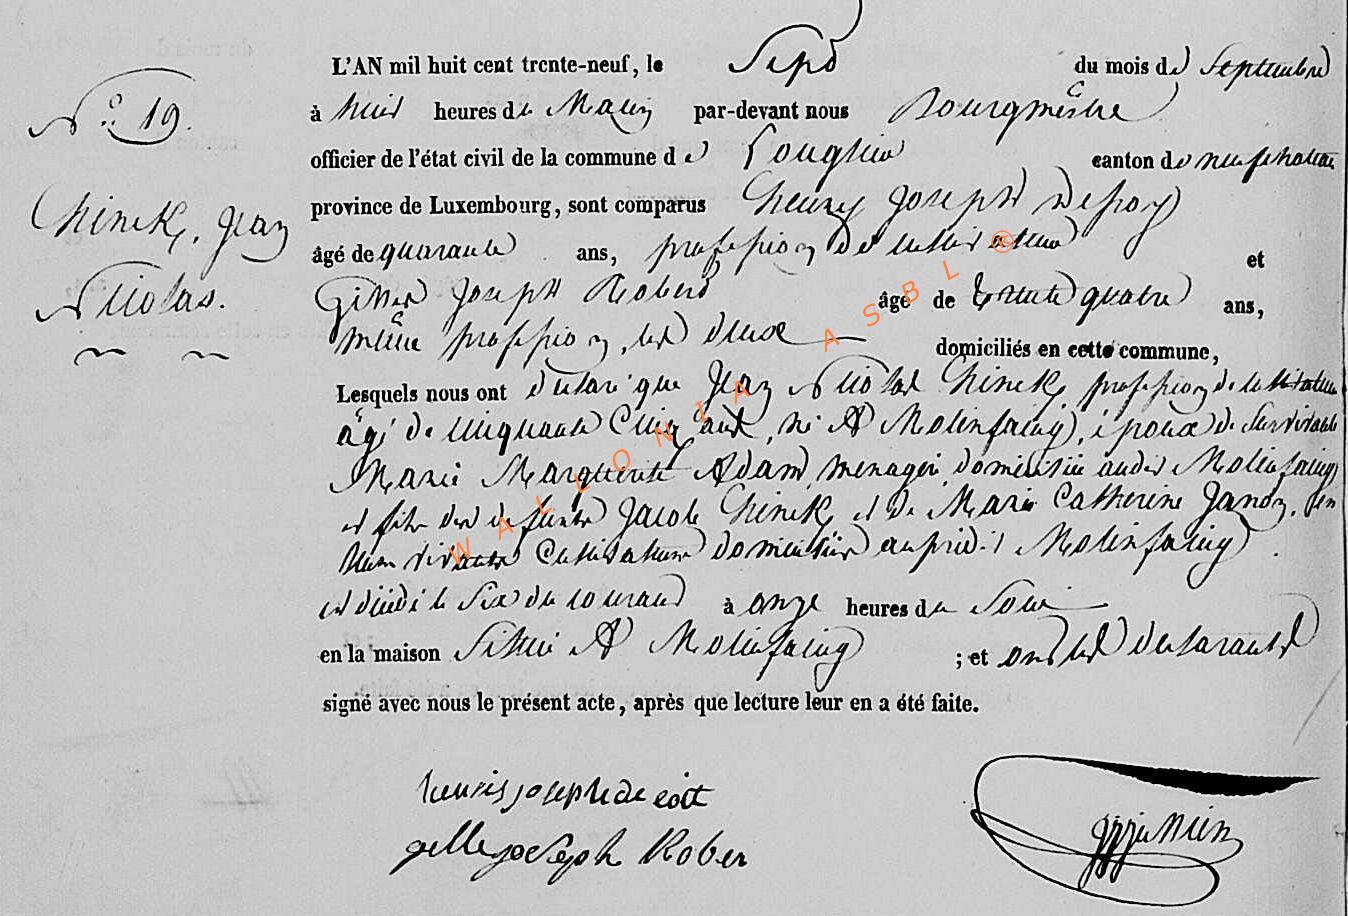 L'AN mil huit cent trente-neuf, le Sept du mois de Septembre
N° 19.
à huit heures du Matin par-devant nous Bourgmêstre
officier de l'état civil de la commune de Longlier canton de neufchateau
Thinck, Jean
Nicolas.
province de Luxembourg, sont comparus henry Joseph
âgé de quarante ans, profession de cultivateur et
Gilles Joseph Robert âgé de trente quatre ans,
même profession, les deux domiciliés en cette commune,
Lesquels nous ont declaré que Jean Nicolas Thinck, profession de cultivateur
âgé de cinquante cinq ans, né A Molinfaing, époux de survivante
Marie Marguerite Adam, menagere, domiciliée audit Molinfaing
et fils des defunts Jacob Thinck et de Marie Catherine, en
leur vivants cultivateurs domiciliés au predit Molinfaing.
est décédé le Six du courant à onze heures du Soir
en la maison Située A Molinfaing ; et ont les declarants
signé avec nous le présent acte, après que lecture leur en a été faite.
henris joseph
gelle joseph Rober
WALLONIA ASBL ®